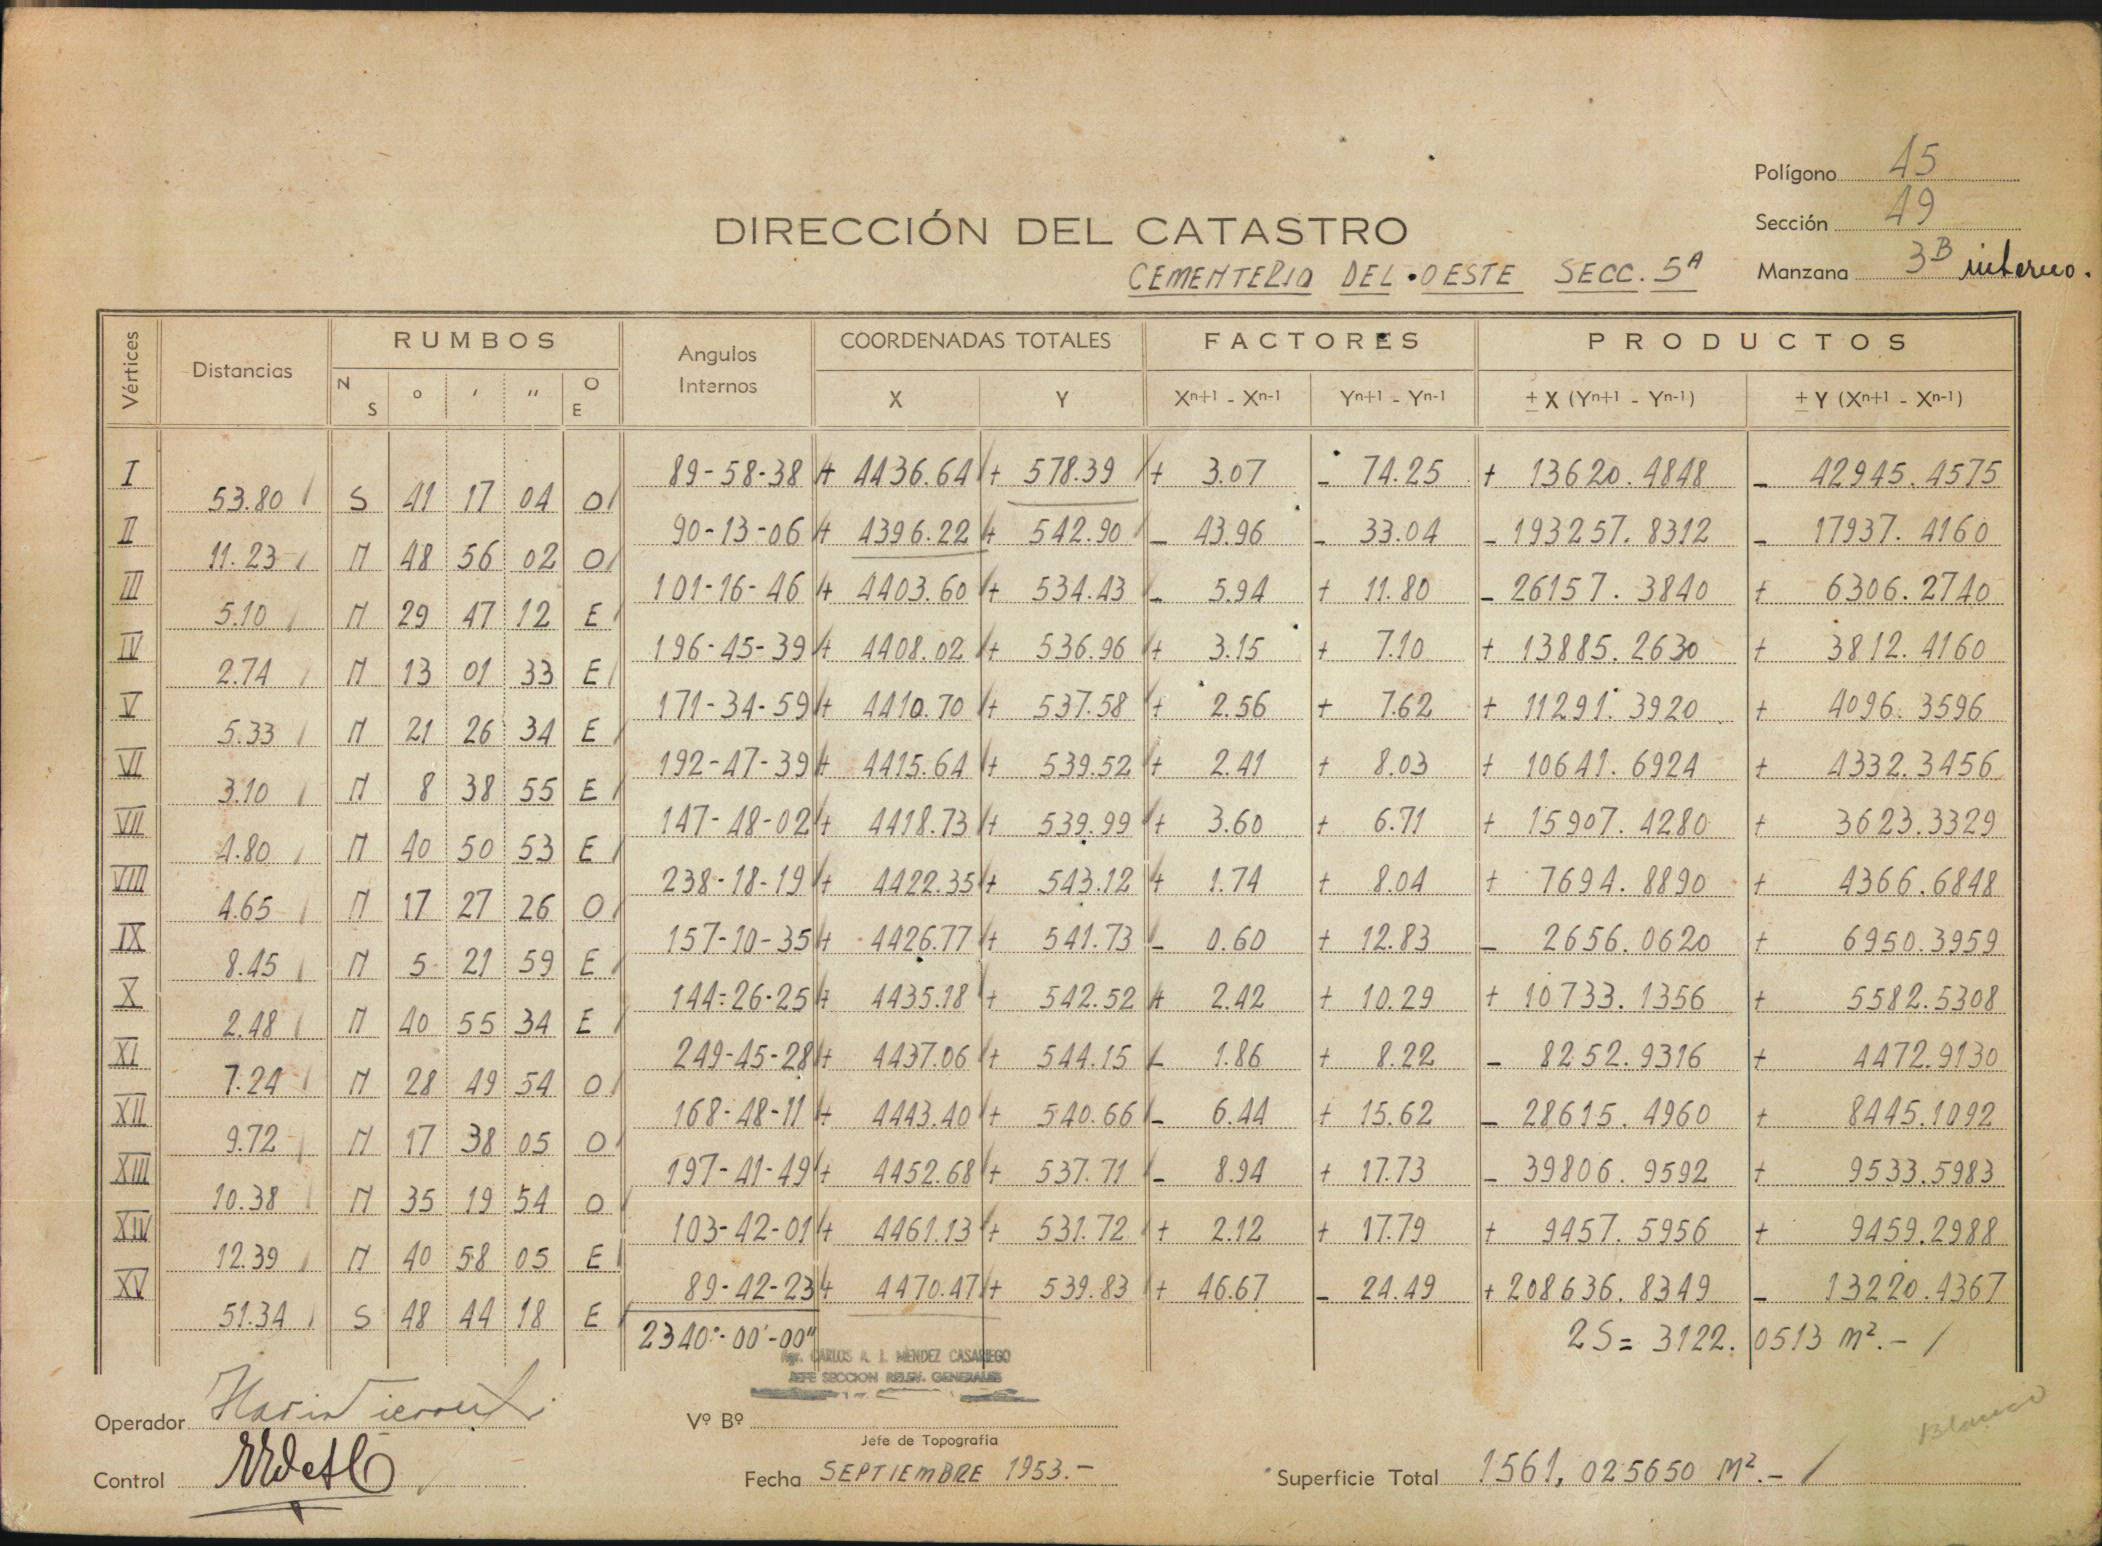 Polígono 45
Sección 49
DIRECCIÓN DEL CATASTRO
CEMENTERIO DEL OESTE SECC. 5A
Manzana 3B interno.
Vértices Distancias RUMBOS Angulos Internos COORDENADAS TOTALES FACTORES PRODUCTOS
N S ° ′ ″ O E X Y Xn+1 - Xn-1 Yn+1 - Yn-1 ± X (Yn+1 - Yn-1) ± Y (Xn+1 - Xn-1)
I 89-58-38 + 4436.64 + 578.39 + 3.07 - 74.25 + 13620.4848 - 42945.4575
53.80 S 41 17 04 O
II 90-13-06 + 4396.22 + 542.90 - 43.96 - 33.04 - 193257.8312 - 17937.4160
11.23 N 48 56 02 O
III 101-16-46 + 4403.60 + 534.43 - 5.94 + 11.80 - 26157.3840 + 6306.2740
5.10 N 29 47 12 E
IV 196-45-39 + 4408.02 + 536.96 + 3.15 + 7.10 + 13885.2630 + 3812.4160
2.74 N 13 01 33 E
V 171-34-59 + 4410.70 + 537.58 + 2.56 + 7.62 + 11291.3920 + 4096.3596
5.33 N 21 26 34 E
VI 192-47-39 + 4415.64 + 539.52 + 2.41 + 8.03 + 10641.6924 + 4332.3456
3.10 N 8 38 55 E
VII 147-48-02 + 4418.73 + 539.99 + 3.60 + 6.71 + 15907.4280 + 3623.3329
4.80 N 40 50 53 E
VIII 238-18-19 + 4422.35 + 543.12 + 1.74 + 8.04 + 7694.8890 + 4366.6848
4.65 N 17 27 26 O
IX 157-10-35 + 4426.77 + 541.73 - 0.60 + 12.83 - 2656.0620 + 6950.3959
8.45 N 5 21 59 E
X 144-26-25 + 4435.18 + 542.52 + 2.42 + 10.29 + 10733.1356 + 5582.5308
2.48 N 40 55 34 E
XI 249-45-28 + 4437.06 + 544.15 - 1.86 + 8.22 - 8252.9316 + 4472.9130
7.24 N 28 49 54 O
XII 168-48-11 + 4443.40 + 540.66 - 6.44 + 15.62 - 28615.4960 + 8445.1092
9.72 N 17 38 05 O
XIII 197-41-49 + 4452.68 + 537.71 - 8.94 + 17.73 - 39806.9592 + 9533.5983
10.38 N 35 19 54 O
XIV 103-42-01 + 4461.13 + 531.72 + 2.12 + 17.79 + 9457.5956 + 9459.2988
12.39 N 40 58 05 E
XV 89-42-23 + 4470.47 + 539.83 + 46.67 - 24.49 + 208636.8349 - 13220.4367
51.34 S 48 44 18 E
2340°-00'-00" 2S = 3122.0513 m².-
Agr. CARLOS A. J. MENDEZ CASARIEGO
JEFE SECCION RELEV. GENERALES
Operador Vº Bº
Jefe de Topografía
Blanco
Control Fecha SEPTIEMBRE 1953.- Superficie Total 1561,025650 M².-